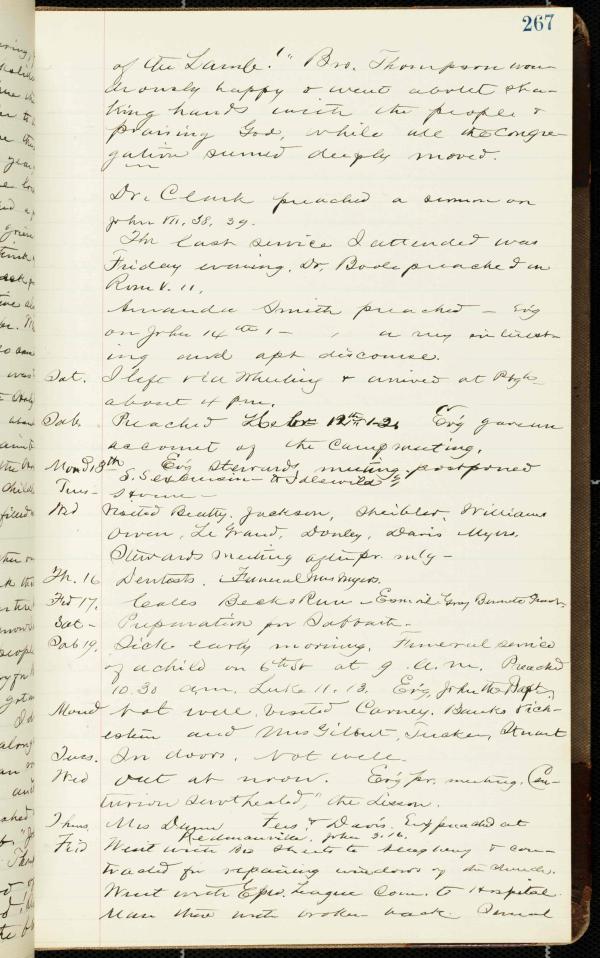 267
of the Lamb!" Bro. Thompson won-
drously happy & went about sha-
king hands with the people &
praising God, while all the congre-
gation seemed deeply moved.
Dr. Clark preached a sermon on
John VII, 38, 39.
The last service I attended was
Friday evening. Dr. Boole preached on
Rom V. 11.
Amanda Smith preached - Ev'g
on John 14th 1 - a very interest-
ing and apt discourse.
Sat. I left via Wheeling & arrived at Pbgh-
about 4 p.m.
Sab. Preached Heb 12th 1-2. Ev'g gave an
account of the Camp meeting.
Mond 13th Ev'g Stewards meeting postponed
Tues- S.S. excursion to Idlewild
Storme-
Wed Visited Beatty, Jackson, Sheibler, Williams
Owen, Le Grand, Donley, Davis Myers.
Stewards meeting after pr. mtg-
Th. 16 Dentists. Funeral Mrs Myers.
Frid 17. Calls Becks Run -
Sat- Preparation for Sabbath.
Sab 19. Sick early morning. Funeral service
of a child on 6th St at 9 a.m. Preached
10.30 a.m. Luke 11.13. Ev'g, John the Bapt.
Mond Not well. Visited Carney, Banks Rich-
estein and Mrs Gilbert, Tucker, Stuart
Tues. In doors. Not well.
Wed Out at noon. Ev'g pr. meeting, "Cen-
turion servt healed," the Lesson.
Thurs. Mrs Dunn & Davis. Ev'g preached at
Redmanville. John 3.16.
Frid Went with Bro to & con-
tracted for repairing windows of the church.
Went with Epw. League Com. to Hospital
Man there with broken back.